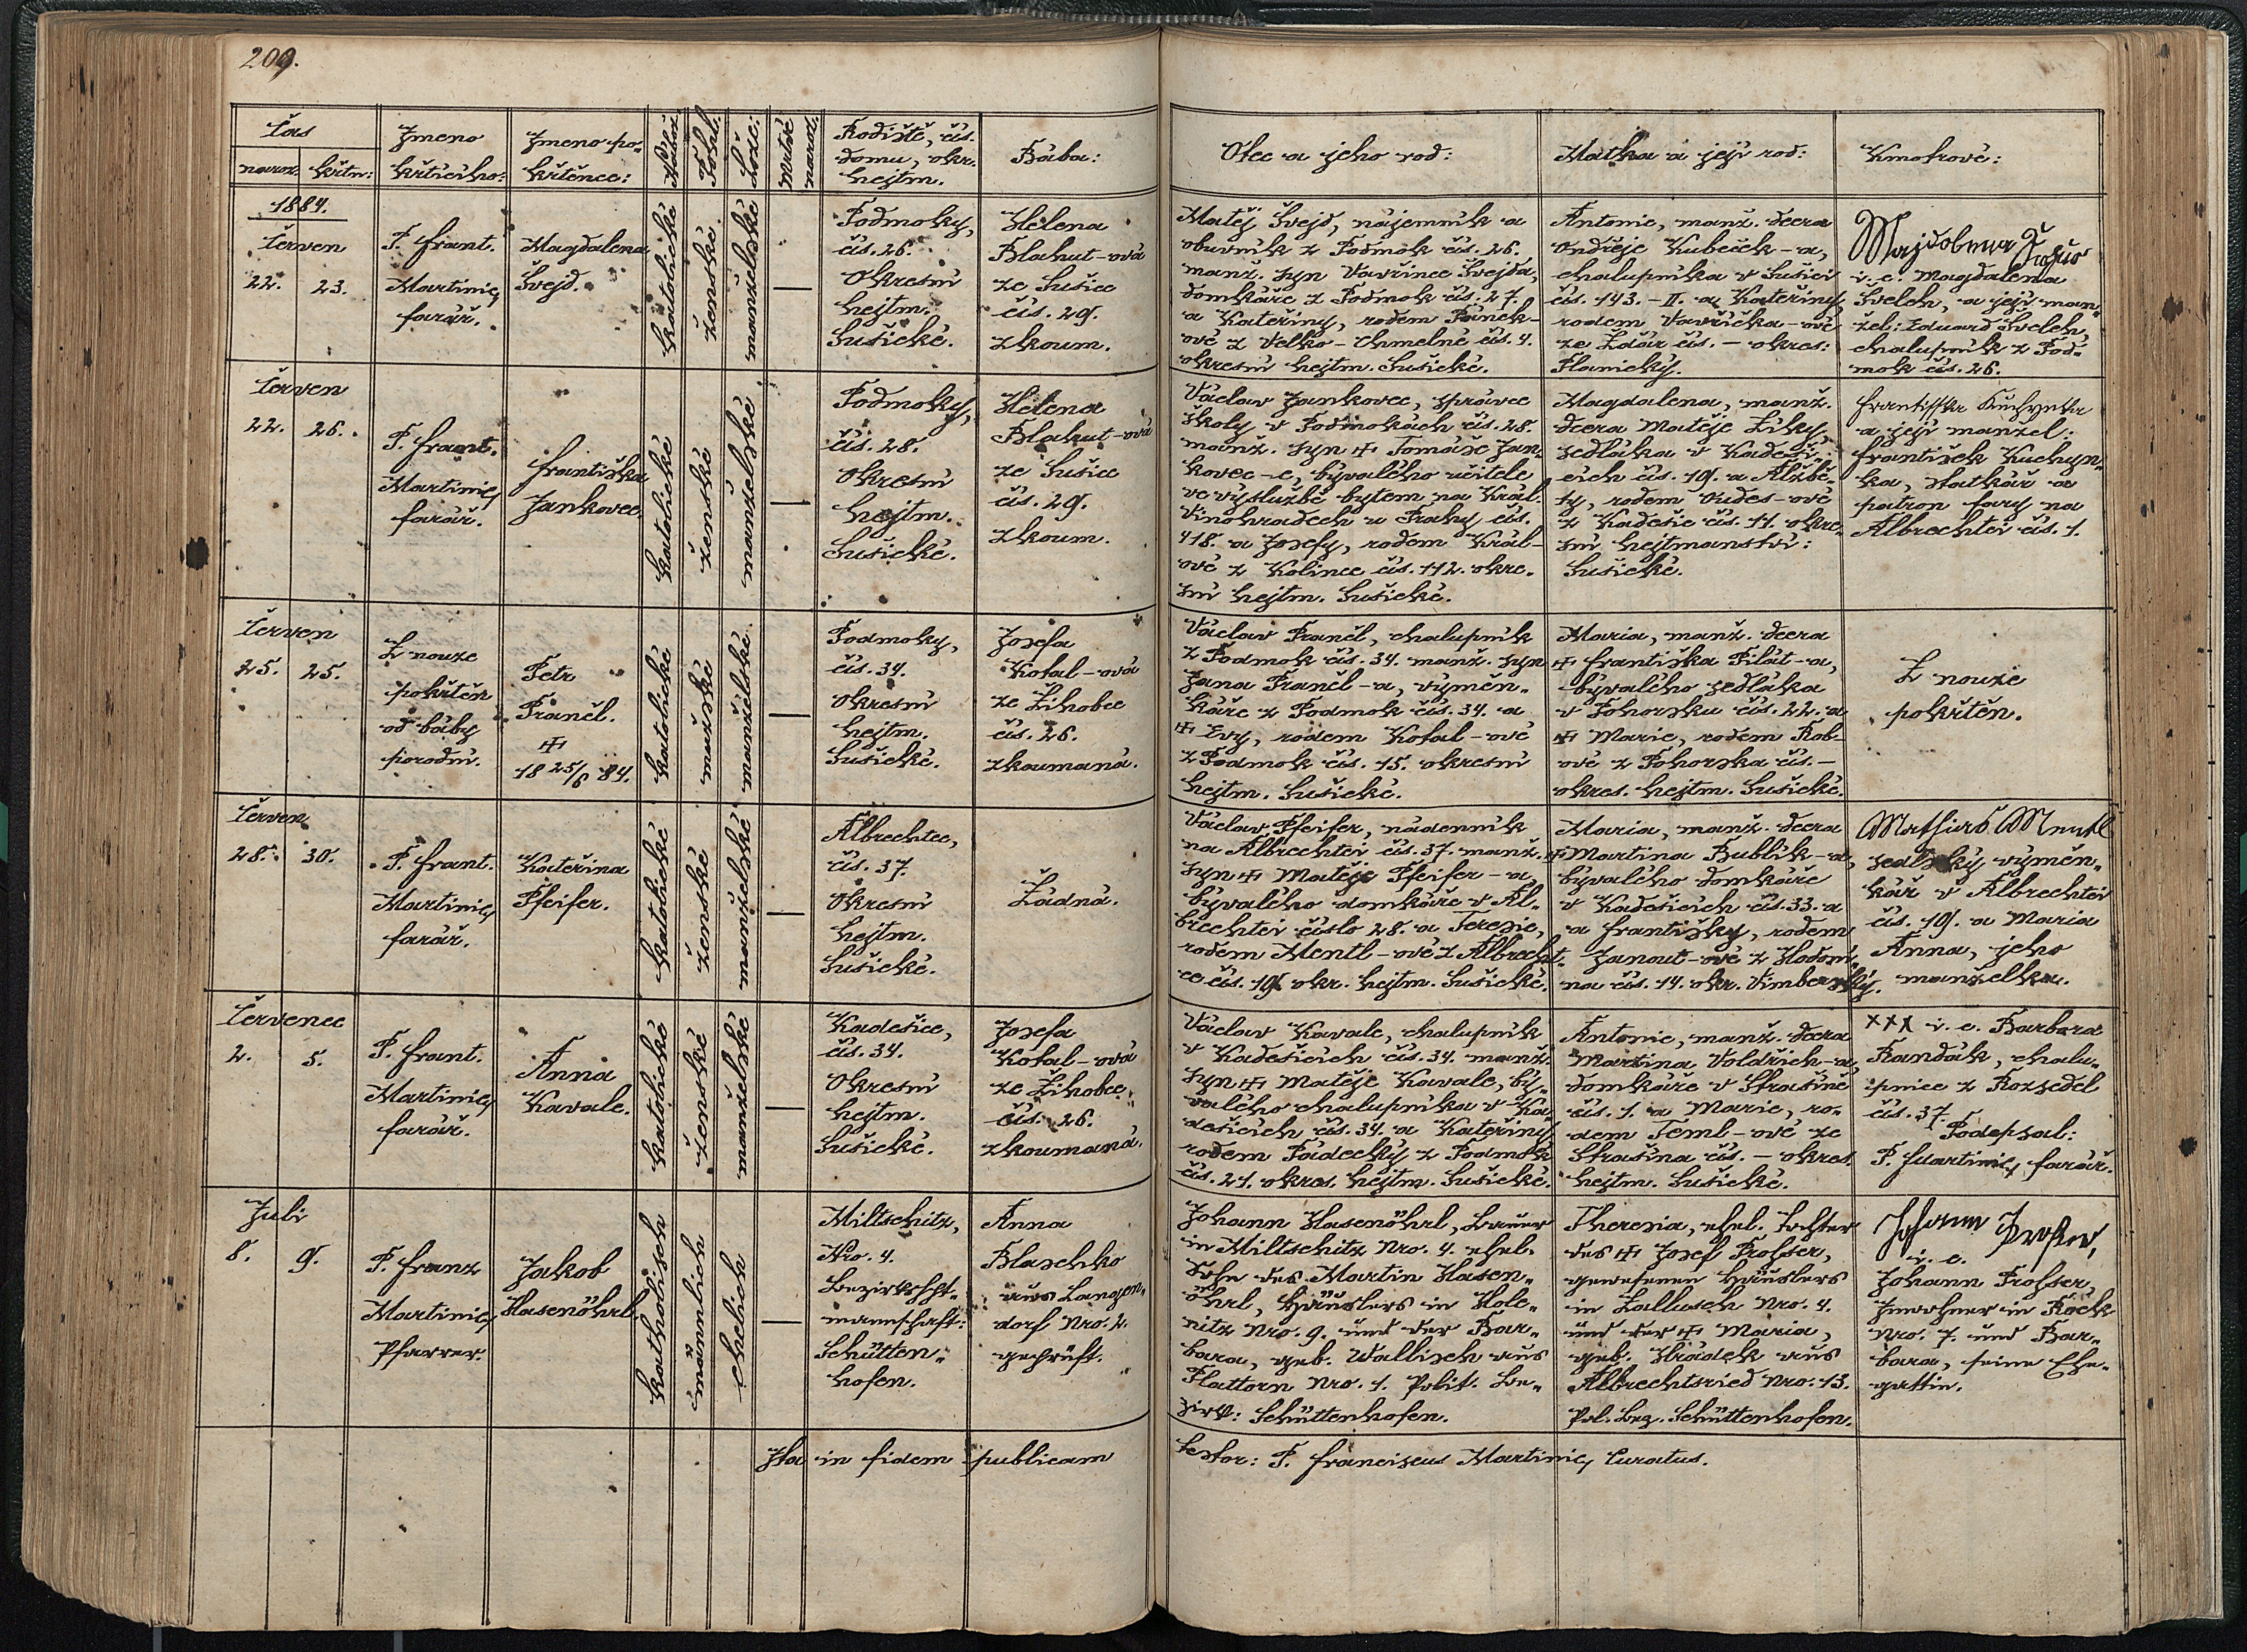 209.
Čas
naroz. křtu:
Jmeno
křtícího:
Jmeno po-
křtěnce:
Nábož.
Pohl.
Lože:
Mrtvě
naroz.
Rodiště, čís.
domu, okr.
hejtm.
Bába:
Otec a jeho rod:
Matka a její rod:
Kmotrové:
1884.
Červen
22. 23.
P. Frant.
Martinic,
farář.
Magdalena
Švejd.
katolické
ženské
manželské
—
Podmoky,
čís. 26.
Okresní
hejtm.
Sušické.
Helena
Blahut-ová
ze Sušice
čís. 29.
zkoum.
Matěj Švejd, nájemník a
obuvník z Podmok čís. 26.
manž. syn Vavřince Švejda,
domkáře z Podmok čís. 27.
a Kateřiny, rodem Pánek-
ové z Velko-Chmelné čís. 4.
okresní hejtm. Sušické.
Antonie, manž. dcera
Ondřeje Kubeček-a,
chalupníka v Sušici
čís. 143.-II. a Kateřiny,
rodem Vavřička-ové
ze Ždár čís. — okres:
Planický.
i. e. Magdalena
Švelch, a její man-
žel: Eduard Švelch,
chalupník z Pod-
mok čís. 26.
Červen
22. 26.
P. Frant.
Martinic,
farář.
Františka
Jankovec.
katolické
ženské
manželské
—
Podmoky,
čís. 28.
Okresní
hejtm.
Sušické.
Helena
Blahut-ová
ze Sušice
čís. 29.
zkoum.
Václav Jankovec, správce
školy v Podmokách čís. 28.
manž. syn ✠ Tomáše Jan-
kovec-e, bývalého učitele
ve výslužbě bytem na Král.
Vinohradech u Prahy čís.
418. a Josefy, rodem Král-
ové z Kolince čís. 112. okre-
sní hejtm. Sušické.
Magdalena, manž.
dcera Matěje Ziky,
sedláka v Kadeši-
cích čís. 19. a Alžbě-
ty, rodem Oudes-ové
z Kadešic čís. 11. okre-
sní hejtmanství:
Sušické.
Frantisska Kuchynka
a její manžel:
František Kuchyn-
ka, statkář a
patron fary na
Albrechtci čís. 1.
Červen
25. 25.
Z nouze
pokřtěn
od báby
porodní.
Petr
Prančl.
✠
18 25/6 84.
katolické
mužské
manželské
—
Podmoky,
čís. 34.
Okresní
hejtm.
Sušické.
Josefa
Kotal-ová
ze Žihobec
čís. 26.
zkoumaná.
Václav Prančl, chalupník
z Podmok čís. 34. manž. syn
Jana Prančl-a, výměn-
káře z Podmok čís. 34. a
✠ Evy, rodem Kotal-ové
z Podmok čís. 15. okresní
hejtm. Sušické.
Maria, manž. dcera
✠ Františka Pilát-a,
bývalého sedláka
v Pohorsku čís. 22. a
✠ Marie, rodem Rob-
ové z Pohorska čís. —
okres. hejtm. Sušické.
Z nouze
pokřtěn.
Červen
28. 30.
P. Frant.
Martinic,
farář.
Kateřina
Pfeifer.
katolické
ženské
manželské
—
Albrechtec,
čís. 37.
Okresní
hejtm.
Sušické.
Žádná.
Václav Pfeifer, nádenník
na Albrechtci čís. 37. manž.
syn ✠ Matěje Pfeifer-a,
bývalého domkáře v Al-
brechtci číslo 28. a Teresie,
rodem Mentl-ové z Albrecht-
ce čís. 19. okr. hejtm. Sušické.
Maria, manž. dcera
✠ Martina Bublík-a,
bývalého domkáře
v Kadešicích čís. 33. a
a Františky, rodem
Janout-ové z Hodoni-
na čís. 14. okr. Vimberský.
Mathias Mentl
sedlský výměn-
kář v Albrechtci
čís. 19. a Maria
Anna, jeho
manželka.
Červenec
2. 5.
P. Frant.
Martinic,
farář.
Anna
Kavale.
katolické
ženské
manželské
—
Kadešice,
čís. 34.
Okresní
hejtm.
Sušické.
Josefa
Kotal-ová
ze Žihobec
čís. 26.
zkoumaná.
Václav Kavale, chalupník
v Kadešicích čís. 34. manž.
syn ✠ Matěje Kavale, bý-
valého chalupníka v Ka-
dešicích čís. 34. a Kateřiny
rodem Pádecký z Podmok
čís. 21. okres. hejtm. Sušické.
Antonie, manž. dcera
Martina Voldřich-a,
domkáře v Strašíně
čís. 1. a Marie, ro-
dem Teml-ové ze
Strašína čís. — okres.
hejtm. Sušické.
XXX i. e. Barbara
Randák, chalu-
pnice z Rozsedel
čís. 37.
Podepsal:
P. Martinic, farář.
Juli
8. 9.
P. Franz
Martinic,
Pfarrer.
Jakob
Hasenöhrl.
katholisch
männlich
ehelich
—
Miltschitz,
Nro. 4.
Bezirkshpt-
mannschaft:
Schütten-
hofen.
Anna
Blaschko
aus Langen-
dorf Nro. 2.
geprüft.
Johann Hasenöhrl, Bauer
in Miltschitz Nro. 4. ehel.
Sohn des Martin Hasen-
öhrl, Häuslers in Kole-
nitz Nro. 9. und der Bar-
bara, geb. Wallisch aus
Plattorn Nro. 1. Polit. Be-
zirk: Schüttenhofen.
Theresia, ehel. Tochter
des ✠ Josef Proßer,
gewesenen Häuslers
in Zallusch Nro. 4.
und der ✠ Maria,
geb. Hrádek aus
Albrechtsried Nro. 13.
Pol. Bez. Schüttenhofen.
Johann Proßer,
i. e.
Johann Proßer,
Inwohner in Röck
Nro. 7. und Bar-
bara, seine Ehe-
gattin.
Ita in fidem publicam
testor: P. Franciscus Martinic, Curatus.